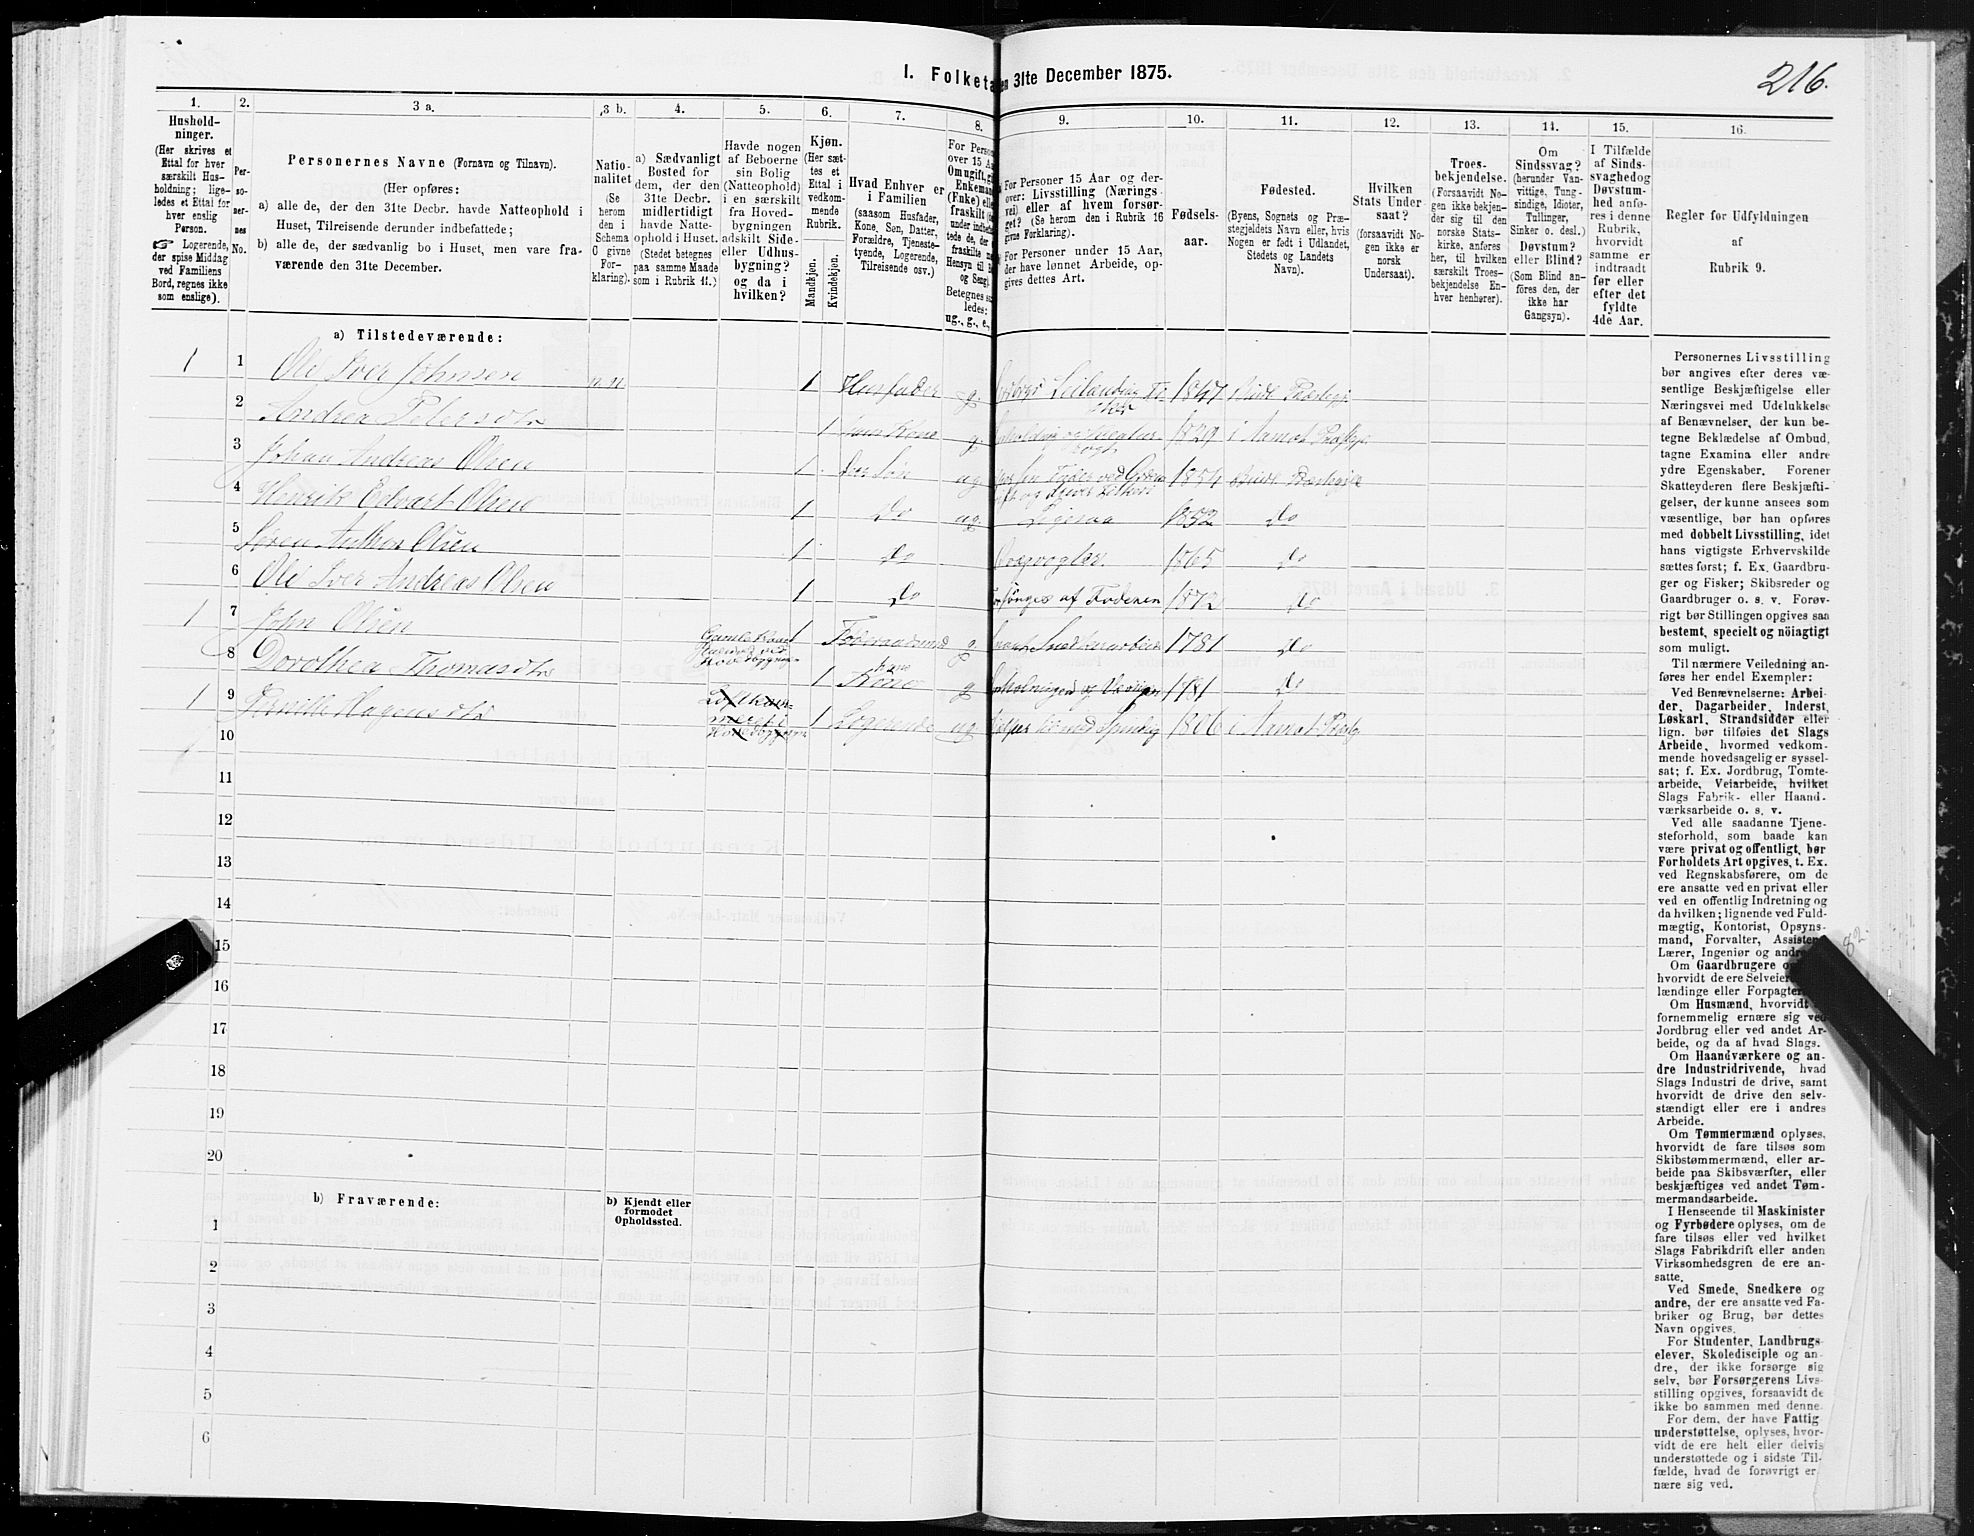 I. Folketa
en 31te December 1875.
216.
1.
Hushold-
ninger.
(Her skrives et
Ettal for hver
særskilt Hus-
holdning; lige-
ledes et Ettal for
hver enslig
Person.
☞ Logerende,
der spise Middag
ved Familiens
Bord, regnes ikke
som enslige).
2.
Per-
so-
ner-
nes
No.
3 a.
Personernes Navne (Fornavn og Tilnavn).
(Her opføres:
a) alle de, der den 31te Decbr. havde Natteophold i
Huset, Tilreisende derunder indbefattede;
b) alle de, der sædvanlig bo i Huset, men vare fra-
værende den 31te December.
3 b.
Natio-
nalitet
(Se
herom
den i
Schema
O givne
For-
klaring).
4.
a) Sædvanligt
Bosted for
dem, der den
31te Decbr.
midlertidigt
havde Natte-
ophold i Huset.
(Stedet betegnes
paa samme Maade
som i Rubrik 11.)
5.
Havde nogen
af Beboerne
sin Bolig
(Natteophold)
i en særskilt
fra Hoved-
bygningen
adskilt Side-
eller Udhus-
bygning?
og da i
hvilken?
6.
Kjøn.
(Her sæt-
tes et
Ettal i
vedkom-
mende
Rubrik.
Mandkjøn.
Kvindekjøn.
7.
Hvad Enhver er
i Familien
(saasom Husfader,
Kone, Søn, Datter,
Forældre, Tjeneste-
tyende, Logerende,
Tilreisende osv.)
8.
For Person
over 15 Aa
Om ugift, gi
Enkemand
(Enke) elle
fraskilt
under indbefat-
tede de, der
fraskilte
Hensyn til B
og Seng
Betegnes
ledes:
ug., g., e.,
9.
For Personer 15 Aar og der-
over: Livsstilling (Nærings-
vei) eller af hvem forsør-
get? (Se herom den i Rubrik 16
givne Forklaring).
For Personer under 15 Aar,
der have lønnet Arbeide, op-
gives dettes Art.
10.
Fødsels-
aar.
11.
Fødested.
(Byens, Sognets og Præ-
stegjeldets Navn eller, hvis
Nogen er født i Udlandet,
Stedets og Landets
Navn).
12.
Hvilken
Stats Under-
saat?
(forsaavidt No-
gen ikke er
norsk
Undersaat).
13.
Troes-
bekjendelse.
(Forsaavidt No-
gen ikke bekjen-
der sig til den
norske Stats-
kirke, anføres
her, til hvilken
særskilt Troes-
bekjendelse En-
hver henhører).
14.
Om
Sindssvag?
(herunder Van-
vittige, Tung-
sindige, Idioter,
Tullinger,
Sinker o. desl.)
Døvstum?
eller Blind?
(Som Blind an-
føres den, der
ikke har
Gangsyn).
15.
I Tilfælde
af Sinds-
svaghed og
Døvstum-
hed anfø-
res i denne
Rubrik,
hvorvidt
samme er
indtraadt
før eller
efter det
fyldte
4de Aar.
16.
Regler for Udfyldningen
af
Rubrik 9.
a) Tilstedeværende:
1 1 Ole Iver Johnsen n n 1 Husfader g. 1847
2 Andrea Petersdtr 1 Kone g. 1829 i Aamot Præstgj
3 Johan Andreas Olsen 1 Søn ug 1854
4 Henrik Edvart Olsen 1 Do ug. Ligesaa 1852 Do
5 Søren Anthon Olsen 1 Do 1865 Do
6 Ole Iver Andreas Olsen 1 Do af Faderen 1872 Do
1 7 John Olsen 1 g 1781 Do
8 Dorothea Thomasdtr 1 Kone g 1781 Do
1 9 Hagensdtr 1 Logerende ug 1806 i Aamot Præstg
10
11
12
13
14
15
16
17
18
19
20
b) Fraværende:
b) Kjendt eller
formodet
Opholdssted.
1
2
3
4
5
6
Personernes Livsstilling
bør angives efter deres væ-
sentlige Beskjæftigelse eller
Næringsvei med Udelukkelse
af Benævnelser, der kun be-
tegne Beklædelse af Ombud,
tagne Examina eller andre
ydre Egenskaber. Forener
Skatteyderen flere Beskjæfti-
gelser, der kunne ansees som
væsentlige, bør han opføres
med dobbelt Livsstilling, idet
hans vigtigste Erhvervskilde
sættes først; f. Ex. Gaardbru-
ger og Fisker; Skibsreder og
Gaardbruger o. s. v. Forøv-
rigt bør Stillingen opgives saa
bestemt, specielt og nöiagtigt
som muligt.
Til nærmere Veiledning an-
føres her endel Exempler:
Ved Benævnelserne: Arbei-
der, Dagarbeider, Inderst,
Løskarl, Strandsidder eller
lign. bør tilføies det Slags
Arbeide, hvormed vedkom-
mende hovedsagelig er syssel-
sat; f. Ex. Jordbrug, Tomte-
arbeide, Veiarbeide, hvilket
Slags Fabrik- eller Haand-
værksarbeide o. s. v.
Ved alle saadanne Tjene-
steforhold, som baade kan
være privat og offentligt, bør
Forholdets Art opgives, t. Ex.
ved Regnskabsførere, om de
ere ansatte ved en privat eller
ved en offentlig Indretning og
da hvilken; lignende ved Fuld-
mægtig, Kontorist, Opsyns-
mand, Forvalter, Assisten
Lærer, Ingeniør og andre
Om Gaardbrugere
hvorvidt de ere Selveier
lændinge eller Forpagter
Om Husmænd, hvorvidt
fornemmelig ernære sig ved
Jordbrug eller ved andet Ar-
beide, og da af hvad Slags.
Om Haandværkere og an-
dre Industridrivende, hvad
Slags Industri de drive, samt
hvorvidt de drive den selv-
stændigt eller ere i andres
Arbeide.
Om Tømmermænd oplyses,
hvorvidt de fare tilsøs som
Skibstømmermænd, eller ar-
beide paa Skibsværfter, eller
beskjæftiges ved andet Tøm-
mermandsarbeide.
I Henseende til Maskinister
og Fyrbødere oplyses, om de
fare tilsøs eller ved hvilket
Slags Fabrikdrift eller anden
Virksomhedsgren de ere an-
satte.
Ved Smede, Snedkere og
andre, der ere ansatte ved Fa-
briker og Brug, bør dettes
Navn opgives.
For Studenter, Landbrugs-
elever, Skoledisciple og an-
dre, der ikke forsørge sig
selv, bør Forsørgerens Livs-
stilling opgives, forsaavidt de
ikke bo sammen med denne.
For dem, der have Fattig-
understøttelse, oplyses, hvor-
vidt de ere helt eller delvis
understøttede og i sidste Til-
fælde, hvad de forøvrigt er-
nære sig ved.